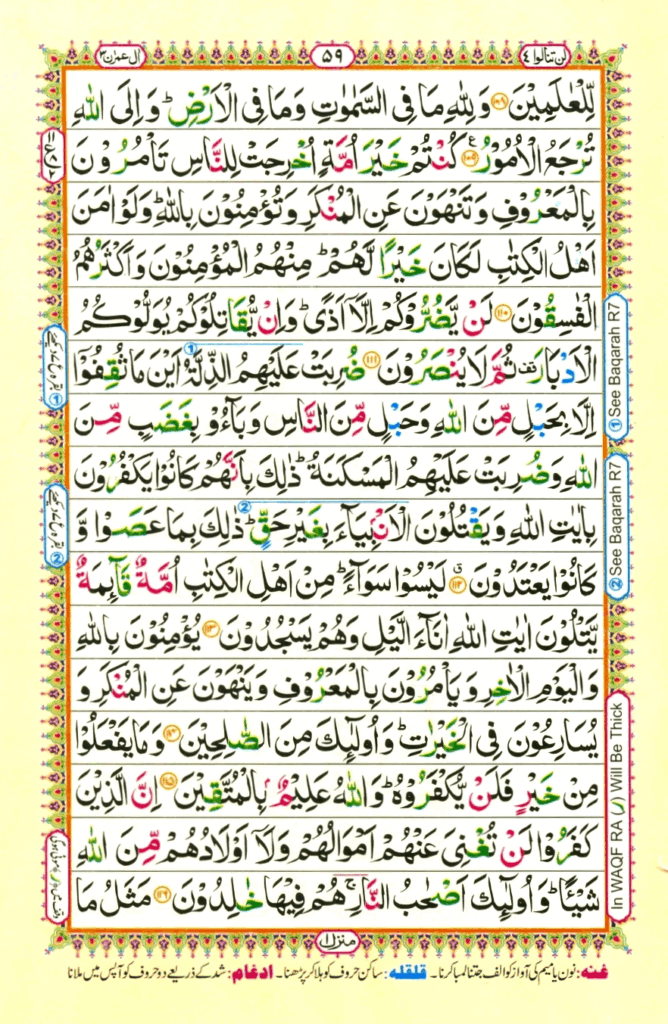 لن تنالوا ٤
٥٩
اٰل عمرٰن ٣
لِّلْعٰلَمِیْنَ ۝۱۰۸ وَلِلّٰهِ مَا فِی السَّمٰوٰتِ وَمَا فِی الْاَرْضِ ؕ وَاِلَی اللّٰهِ
تُرْجَعُ الْاُمُوْرُ ۝۱۰۹ کُنْتُمْ خَیْرَ اُمَّةٍ اُخْرِجَتْ لِلنَّاسِ تَاْمُرُوْنَ
بِالْمَعْرُوْفِ وَتَنْهَوْنَ عَنِ الْمُنْکَرِ وَتُؤْمِنُوْنَ بِاللّٰهِ ؕ وَلَوْ اٰمَنَ
اَهْلُ الْکِتٰبِ لَکَانَ خَیْرًا لَّهُمْ ؕ مِنْهُمُ الْمُؤْمِنُوْنَ وَاَکْثَرُهُمُ
الْفٰسِقُوْنَ ۝۱۱۰ لَنْ یَّضُرُّوْکُمْ اِلَّاۤ اَذًی ؕ وَاِنْ یُّقَاتِلُوْکُمْ یُوَلُّوْکُمُ
الْاَدْبَارَ ۫ ثُمَّ لَا یُنْصَرُوْنَ ۝۱۱۱ ضُرِبَتْ عَلَیْهِمُ الذِّلَّةُ اَیْنَ مَا ثُقِفُوْۤا
اِلَّا بِحَبْلٍ مِّنَ اللّٰهِ وَحَبْلٍ مِّنَ النَّاسِ وَبَآءُوْ بِغَضَبٍ مِّنَ
اللّٰهِ وَضُرِبَتْ عَلَیْهِمُ الْمَسْکَنَةُ ؕ ذٰلِکَ بِاَنَّهُمْ کَانُوْا یَکْفُرُوْنَ
بِاٰیٰتِ اللّٰهِ وَیَقْتُلُوْنَ الْاَنْۢبِیَآءَ بِغَیْرِ حَقٍّ ؕ ذٰلِکَ بِمَا عَصَوْا وَّ
کَانُوْا یَعْتَدُوْنَ ۝۱۱۲ لَیْسُوْا سَوَآءً ؕ مِنْ اَهْلِ الْکِتٰبِ اُمَّةٌ قَآئِمَةٌ
یَّتْلُوْنَ اٰیٰتِ اللّٰهِ اٰنَآءَ الَّیْلِ وَهُمْ یَسْجُدُوْنَ ۝۱۱۳ یُؤْمِنُوْنَ بِاللّٰهِ
وَالْیَوْمِ الْاٰخِرِ وَیَاْمُرُوْنَ بِالْمَعْرُوْفِ وَیَنْهَوْنَ عَنِ الْمُنْکَرِ وَ
یُسَارِعُوْنَ فِی الْخَیْرٰتِ ؕ وَاُولٰٓئِکَ مِنَ الصّٰلِحِیْنَ ۝۱۱۴ وَمَا یَفْعَلُوْا
مِنْ خَیْرٍ فَلَنْ یُّکْفَرُوْهُ ؕ وَاللّٰهُ عَلِیْمٌۢ بِالْمُتَّقِیْنَ ۝۱۱۵ اِنَّ الَّذِیْنَ
کَفَرُوْا لَنْ تُغْنِیَ عَنْهُمْ اَمْوَالُهُمْ وَلَاۤ اَوْلَادُهُمْ مِّنَ اللّٰهِ
شَیْئًا ؕ وَاُولٰٓئِکَ اَصْحٰبُ النَّارِ ۚ هُمْ فِیْهَا خٰلِدُوْنَ ۝۱۱۶ مَثَلُ مَا
① See Baqarah R7
② See Baqarah R7
In WAQF RA (ر) Will Be Thick
منزل ١
غنه: نون یا میم کی آواز کو الف جتنا لمبا کرنا۔ قلقله: ساکن حروف کو ہلا کر پڑھنا۔ ادغام: شد کے ذریعے دو حروف کو آپس میں ملانا